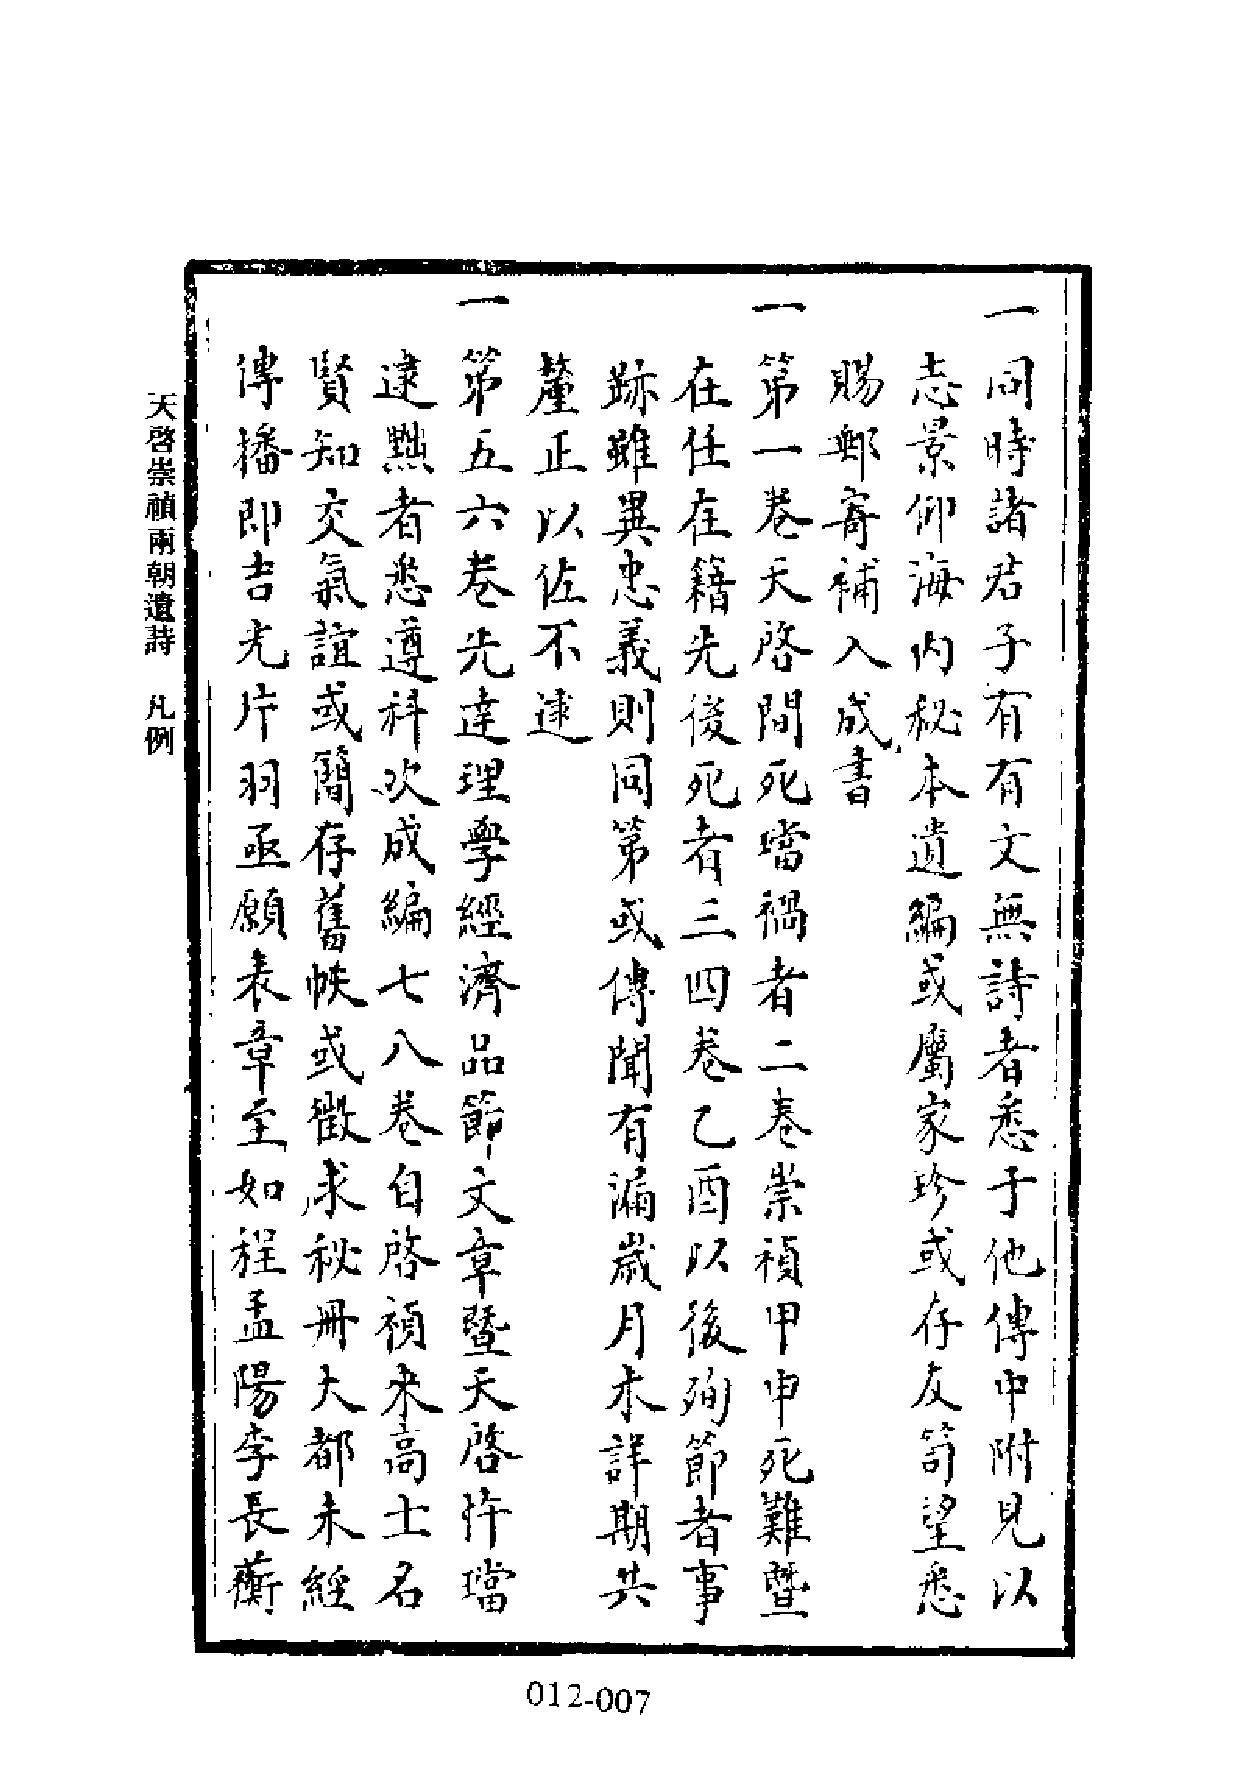 一同時諸君子有有文無詩者悉于他傳中附見以
志景仰海内秘本遺編或屬家珍或存友笥望悉
賜郵寄補入成書
一第一卷天啓間死璫禍者二卷崇禎甲申死難暨
在任在籍先後死者三四卷乙酉以後殉節者事
跡雖異忠義則同第或傳聞有漏歲月未詳期共
釐正以佐不逮
一第五六卷先達理學經濟品節文章暨天啓忤璫
逮黜者悉遵科次成編七八卷自啓禎來高士名
賢知交氣誼或簡存舊帙或徵求秘冊大都未經
傳播即吉光片羽亟願表章至如程孟陽李長蘅
天啓崇禎兩朝遺詩 凡例
012-007